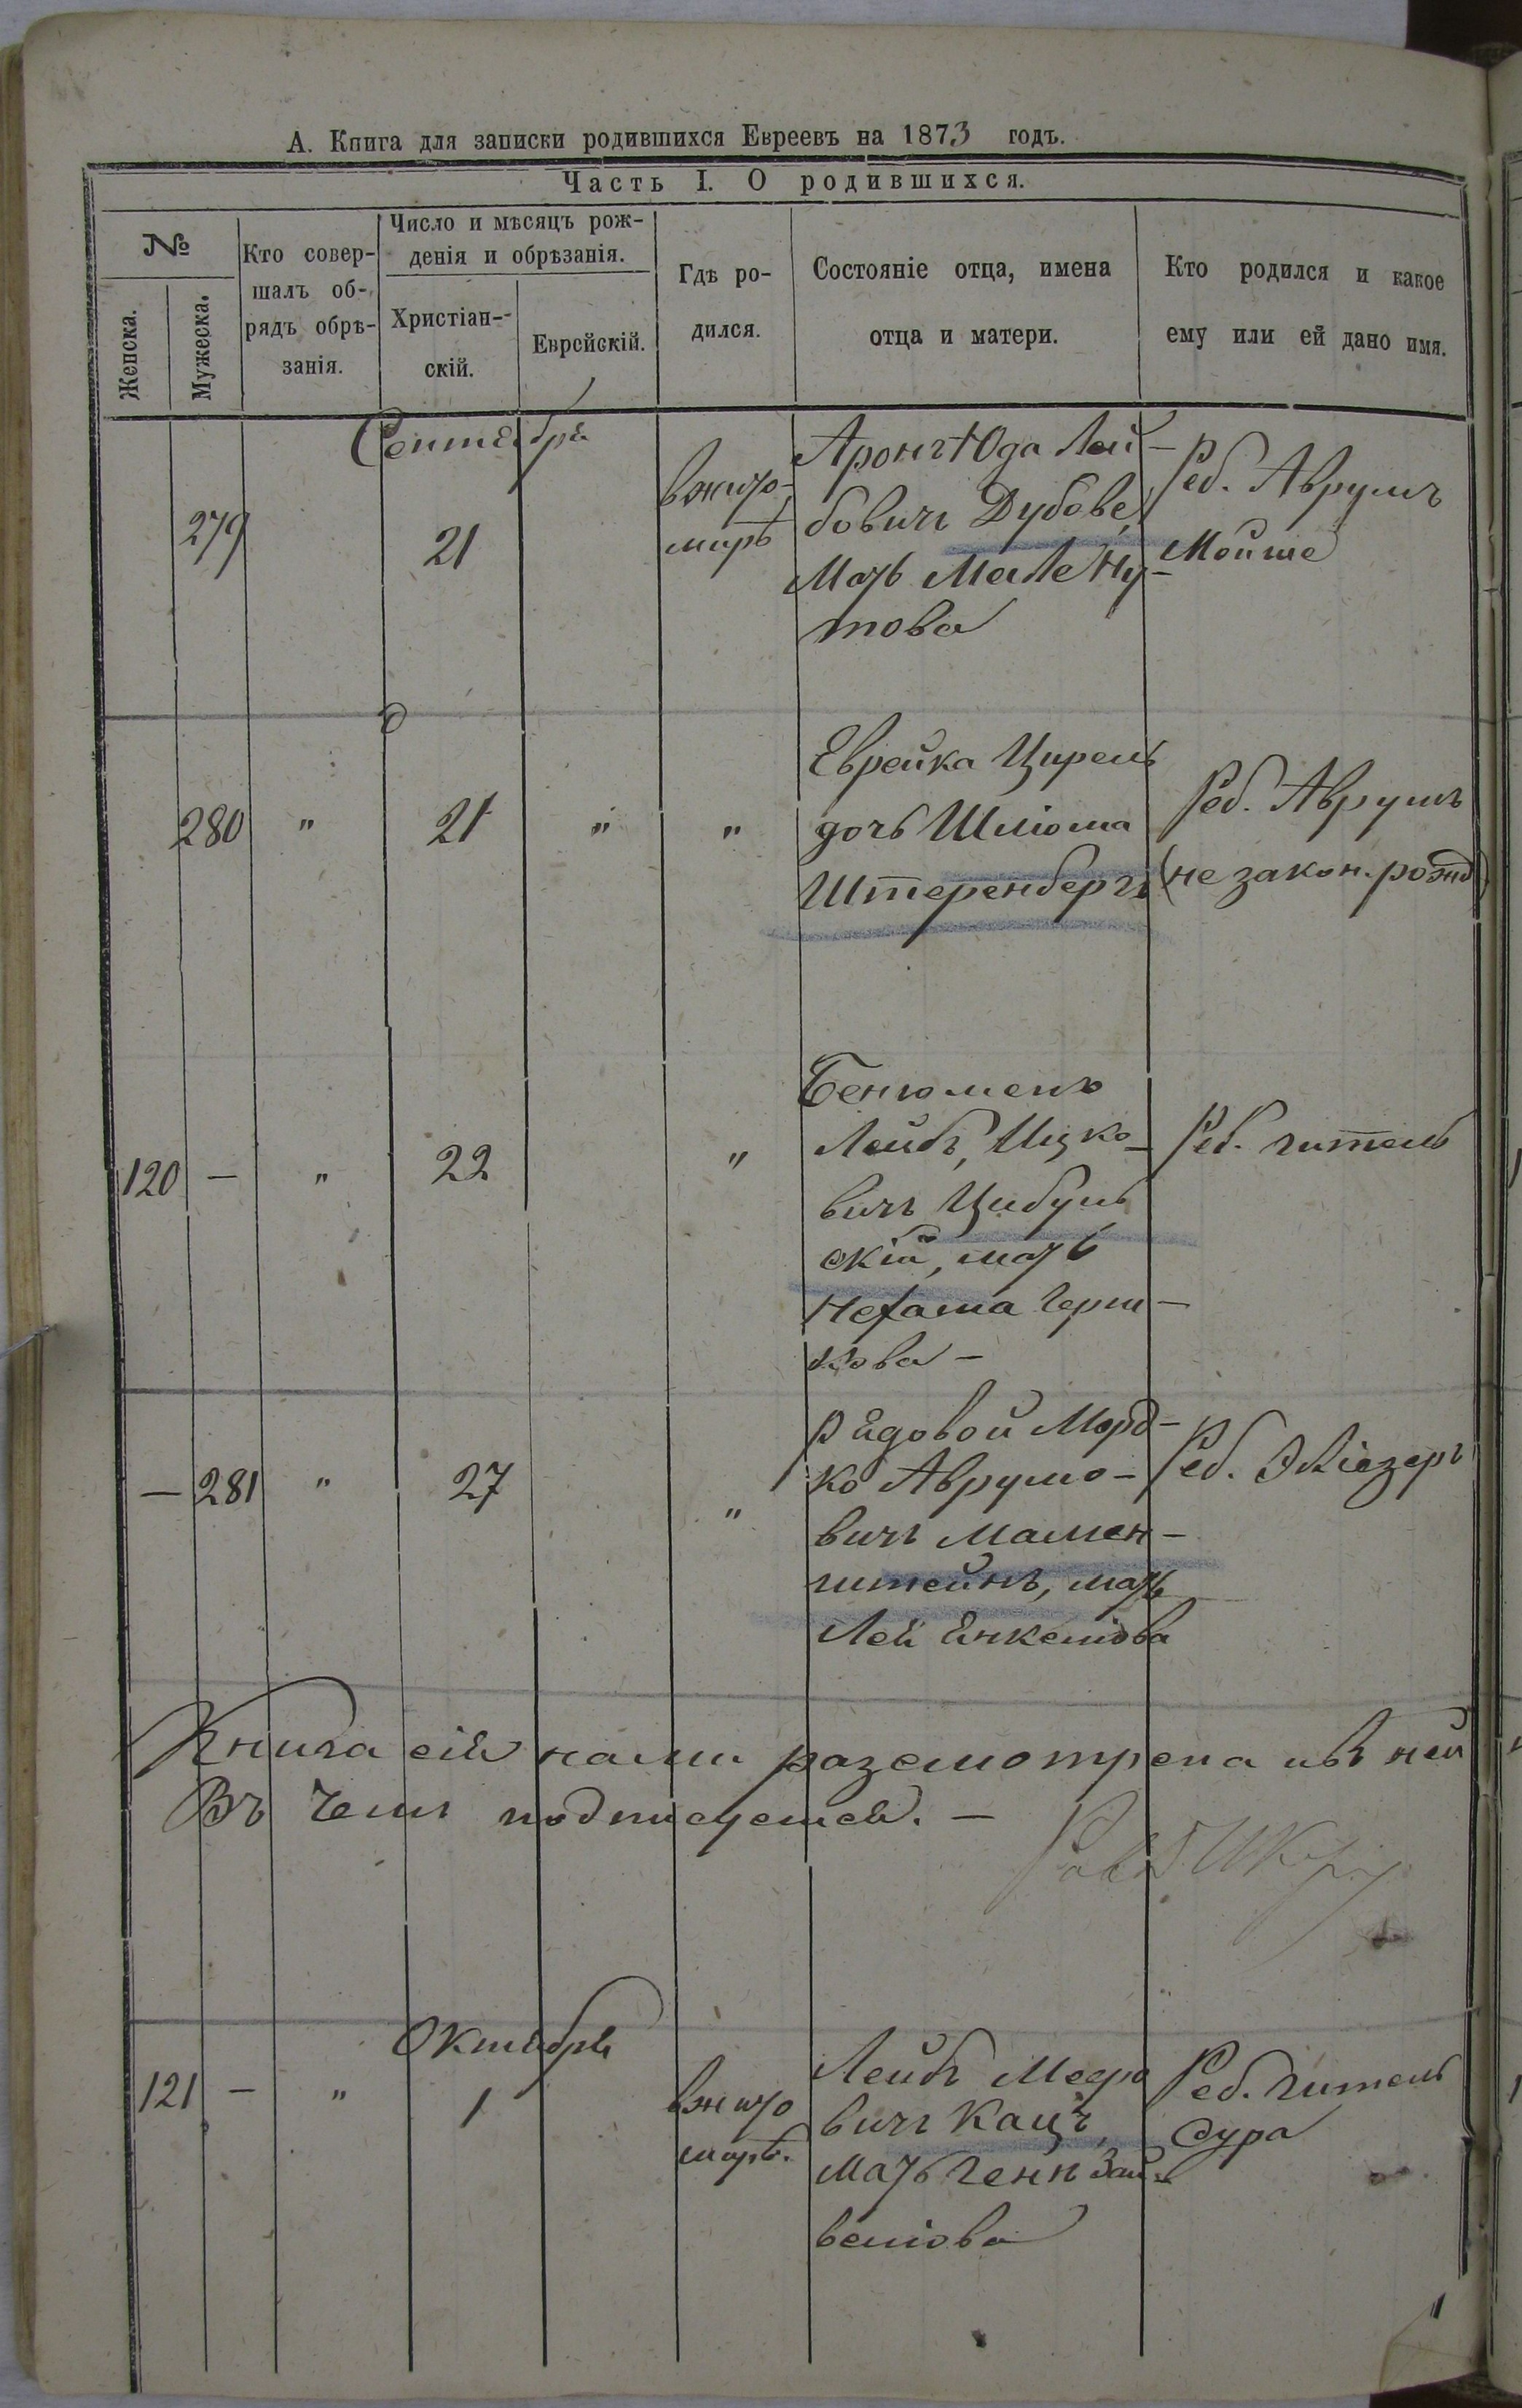 А. Книга для записки родившихся Евреевъ на 1873 годъ.
Часть I. О родившихся.
№
Женска.
Мужеска.
Кто совер-
шалъ об-
рядъ обрѣ-
занія.
Число и мѣсяцъ рож-
денія и обрѣзанія.
Христіан-
скій.
Еврейскій.
Гдѣ ро-
дился.
Состояніе отца, имена
отца и матери.
Кто родился и какое
ему или ей дано имя.
Сентября
279
21
вжито-
мирѣ
Аронъ Юда Лей-
бовичъ Дубове,
Мать Мале Ну-
това
Реб. Аврумъ
Мойше
280 " 21 " "
Еврейка Цирель
дочь Шліома
Штеренбергъ
Реб. Аврумъ
(не закон. рожд)
120 — " 22 "
Бенюменъ
Лейбъ, Ицко-
вичъ Цибуль
скій, мать
Нехама Герш-
кова —
Реб. читель
— 281 " 27 "
Рядовой Морд-
ко Аврумо-
вичъ Мамен-
штейнъ, мать
Лея Янкеліова
Реб. Эліезеръ
Книга сія нами разсмотрена ивъ ней
Въ чемъ подписуемся. —
Октября
121 — " 1
вжито
мирѣ.
Лейбъ Мееро
вичъ Кацъ,
Мать Геня Зай-
веліова
Реб. читель
Сура